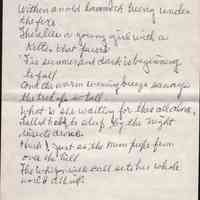 Within an old hammock swung under
the firs
There lies a young girl with a
kitten that purrs
Tis summer and dark is beginning
to fall
And the warm evening breeze
the so tall
What is she waiting for this all alone,
Lulled half to sleep by the night
insects drone
Hush! just as the moon peeps from
over the hill
The whip-poor-will call sets her whole
world